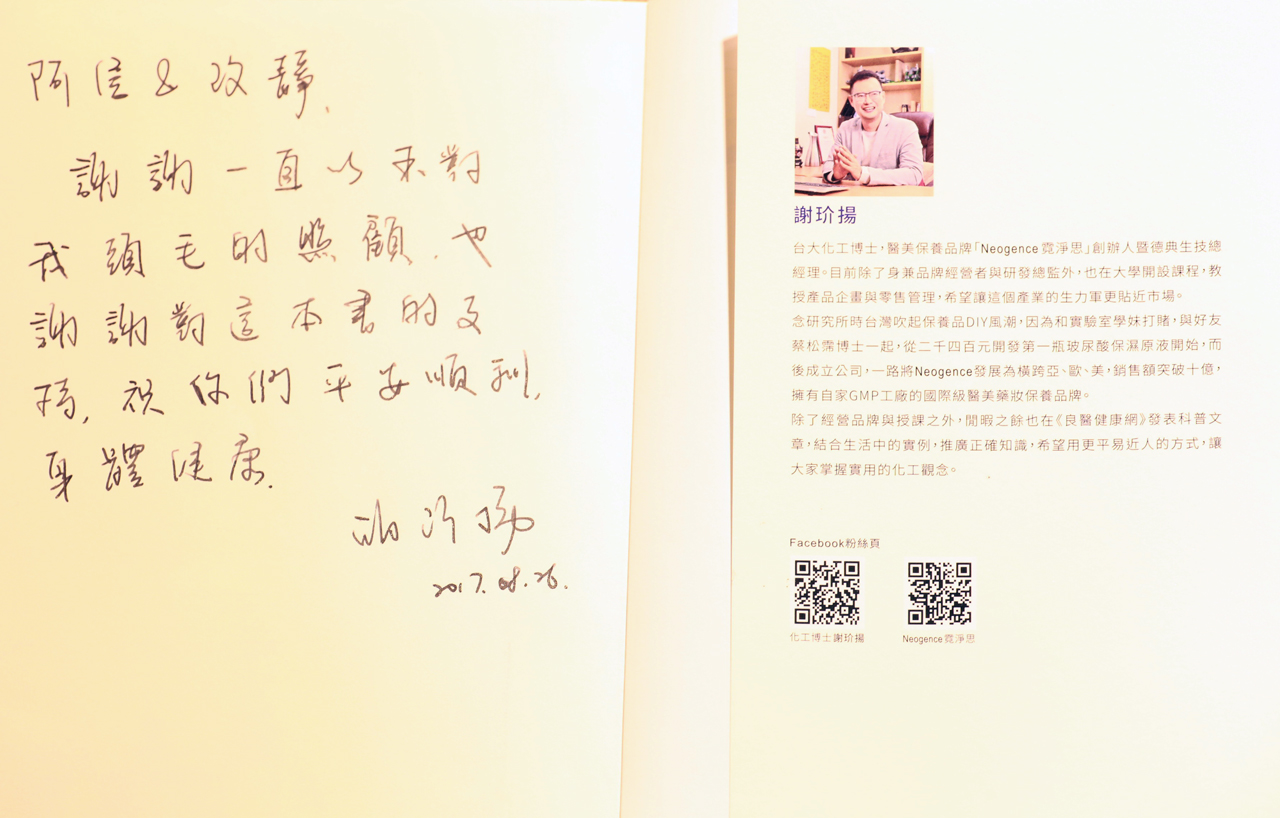 阿信&改靜、
謝謝一直以來對
我頭毛的照顧、也
謝謝對這本書的支
持,祝你們平安順利,
身體健康.
謝玠揚
2017.08.26.
謝玠揚
台大化工博士,醫美保養品牌「Neogence霓淨思」創辦人暨德典生技總
經理。目前除了身兼品牌經營者與研發總監外,也在大學開設課程,教
授產品企畫與零售管理,希望讓這個產業的生力軍更貼近市場。
念研究所時台灣吹起保養品DIY風潮,因為和實驗室學妹打賭,與好友
蔡松霈博士一起,從二千四百元開發第一瓶玻尿酸保濕原液開始,而
後成立公司,一路將Neogence發展為橫跨亞、歐、美,銷售額突破十億,
擁有自家GMP工廠的國際級醫美藥妝保養品牌。
除了經營品牌與授課之外,閒暇之餘也在《良醫健康網》發表科普文
章,結合生活中的實例,推廣正確知識,希望用更平易近人的方式,讓
大家掌握實用的化工觀念。
Facebook粉絲頁
化工博士謝玠揚
Neogence霓淨思